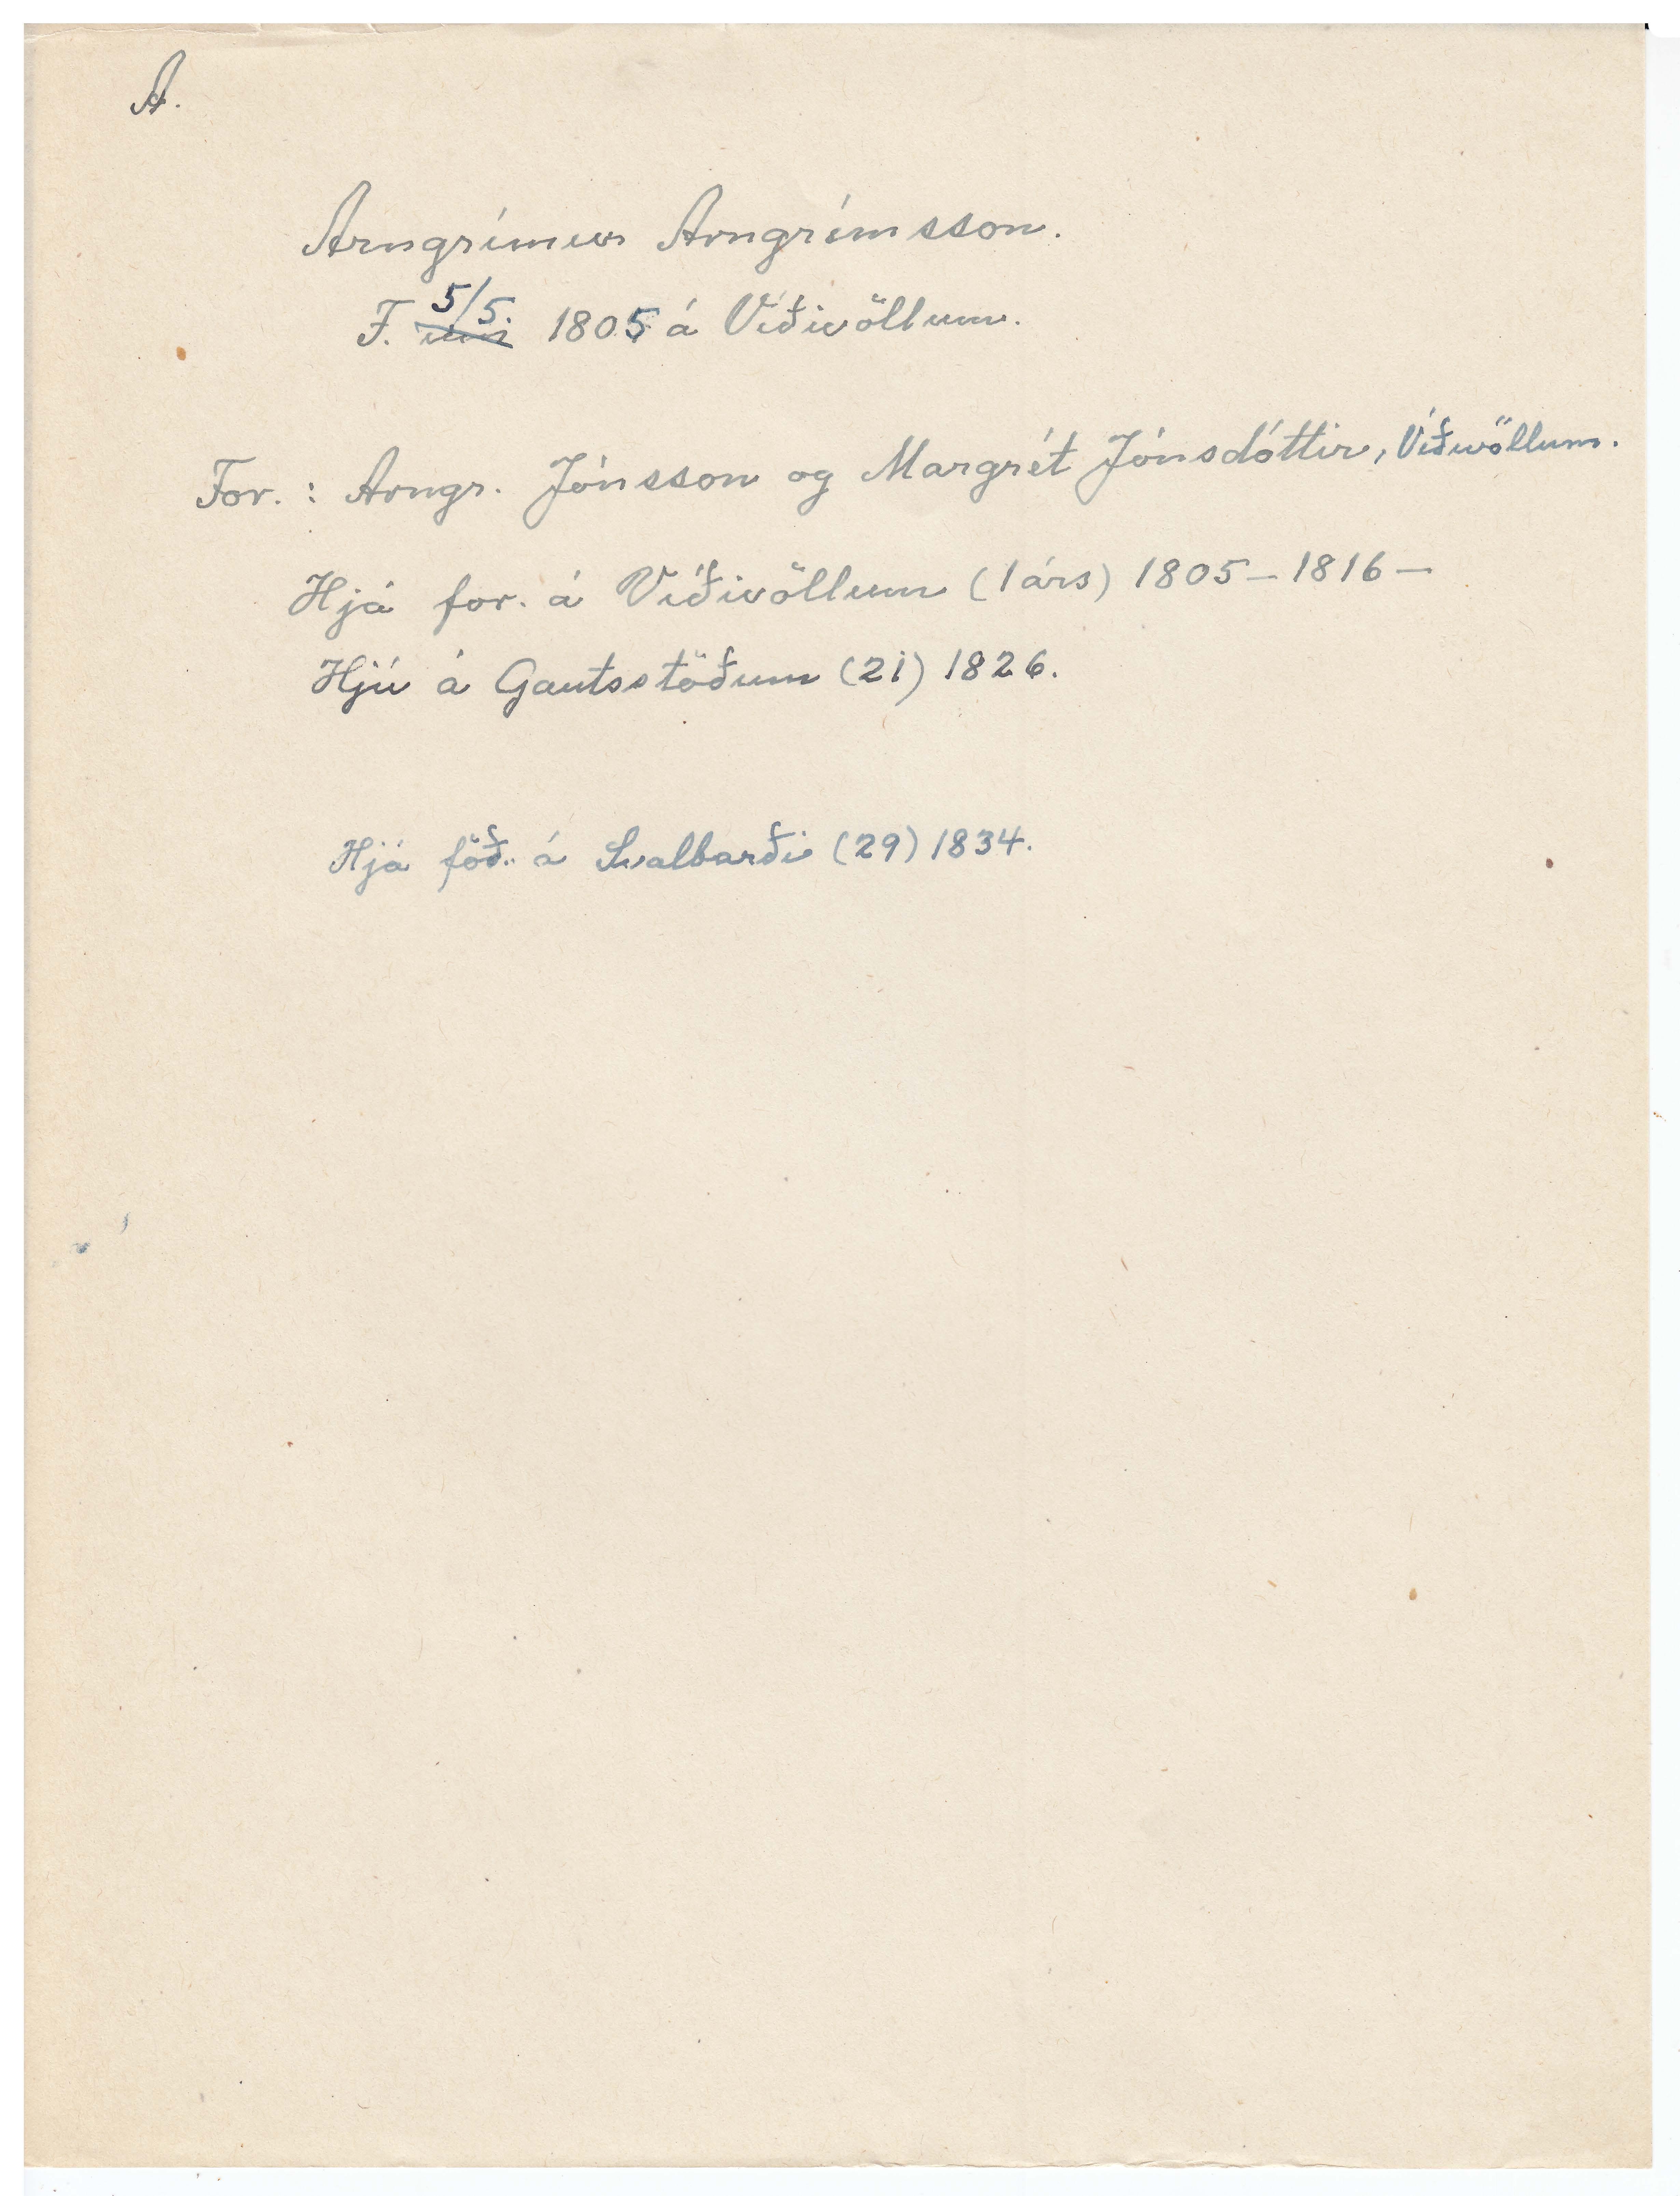 A.
Arngrímur Arngrímsson.
F. 5/5. 1805 á Víðivöllum.
For.: Arngr. Jónsson og Margrét Jónsdóttir, Víðivöllum.
Hjá for. á Víðivöllum (1 árs) 1805 – 1816 –
Hjú á Gautsstöðum (21) 1826.
Hjá föð. á Svalbarði (29) 1834.